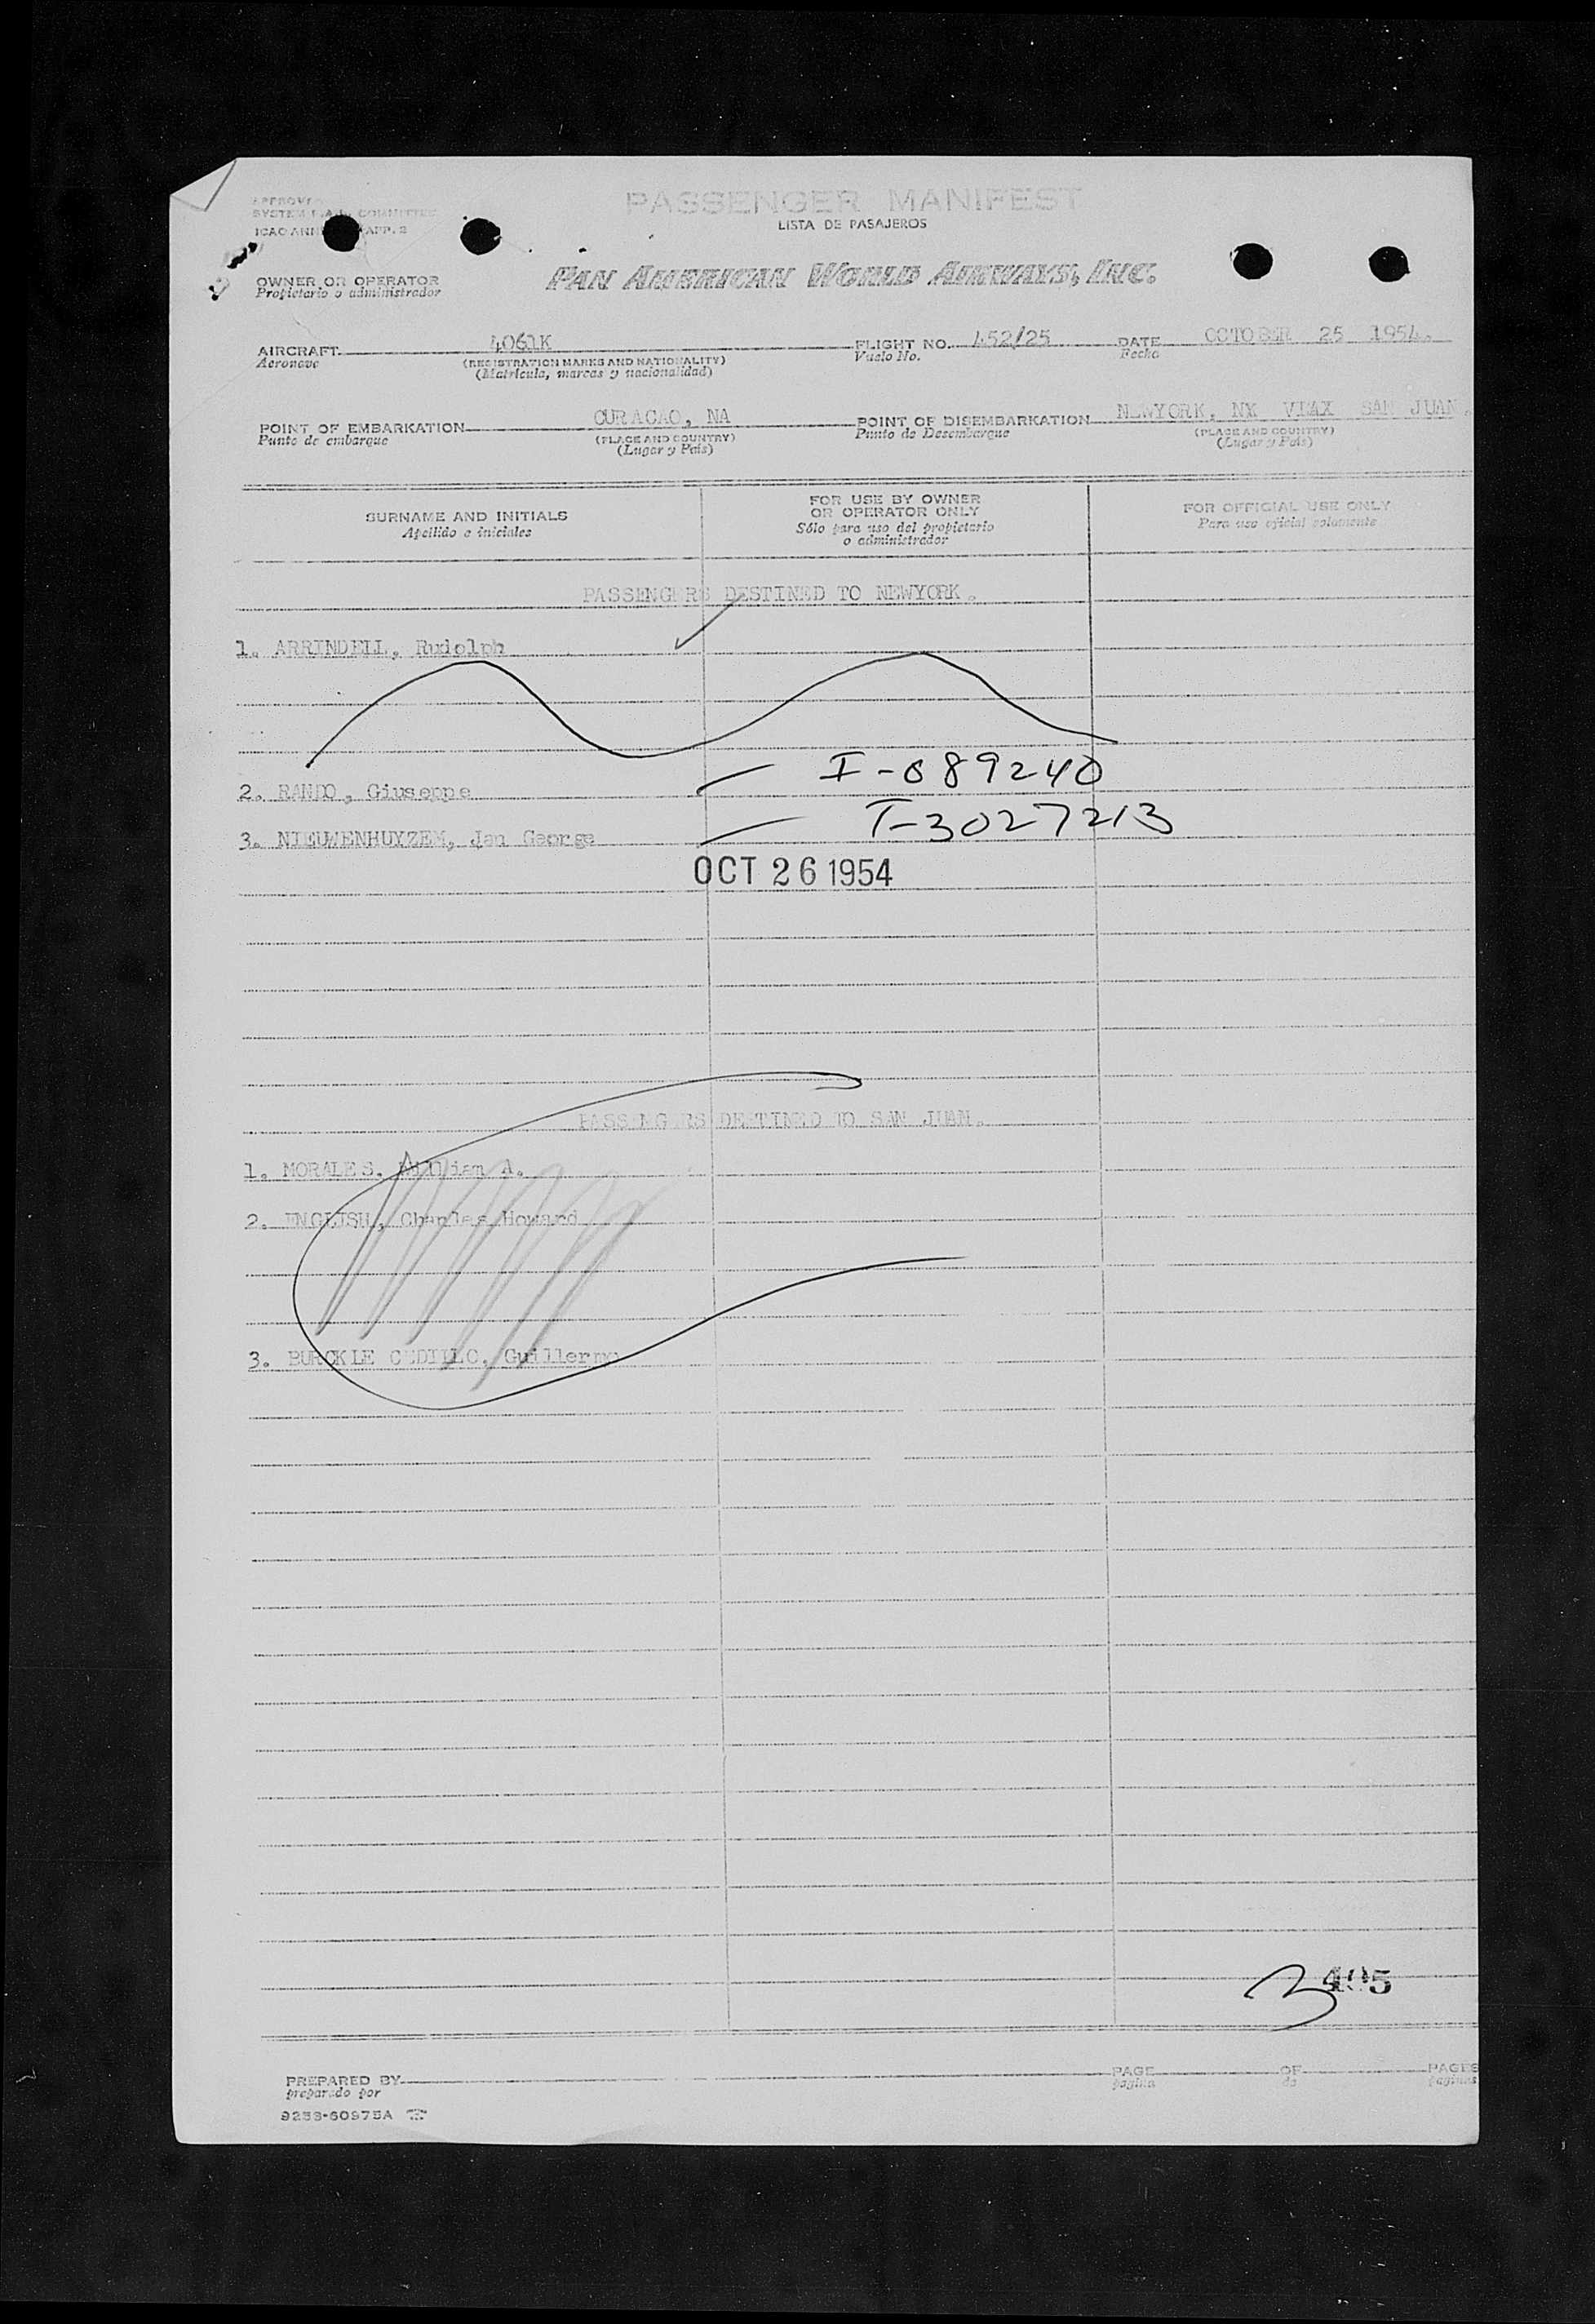 PASSENGER MANIFEST
LISTA DE PASAJEROS
SYSTEM COMMITTEE
ICAO APP. 2
OWNER OR OPERATOR
Propietario o administrador
PAN AMERICAN WORLD AIRWAYS, INC.
AIRCRAFT 4061K FLIGHT NO. 452/25 DATE OCTOBER 25 1954.
Aeronave (REGISTRATION MARKS AND NATIONALITY) Vuelo No. Fecha
(Matrícula, marcas y nacionalidad)
POINT OF EMBARKATION CURACAO, NA POINT OF DISEMBARKATION NEWYORK, NX SAN JUAN.
Punto de embarque (PLACE AND COUNTRY) Punto de Desembarque (PLACE AND COUNTRY)
(Lugar y País) (Lugar y País)
SURNAME AND INITIALS FOR USE BY OWNER OR OPERATOR ONLY FOR OFFICIAL USE ONLY
Apellido e iniciales Sólo para uso del propietario o administrador Para uso oficial solamente
PASSENGERS DESTINED TO NEWYORK.
1. ARRINDELL, Rudolph
2. RANDO, Giuseppe I-689240
3. NIEUWENHUYZEM, Jan George T-3027213
OCT 26 1954
PASSENGERS DESTINED TO SAN JUAN.
1. MORALES, William A.
2. ENGLISH, Charles Howard
3. BURCKLE CEDILLO, Guillermo
3 495
PREPARED BY PAGE OF PAGES
preparado por pagina de paginas
9253-60975A